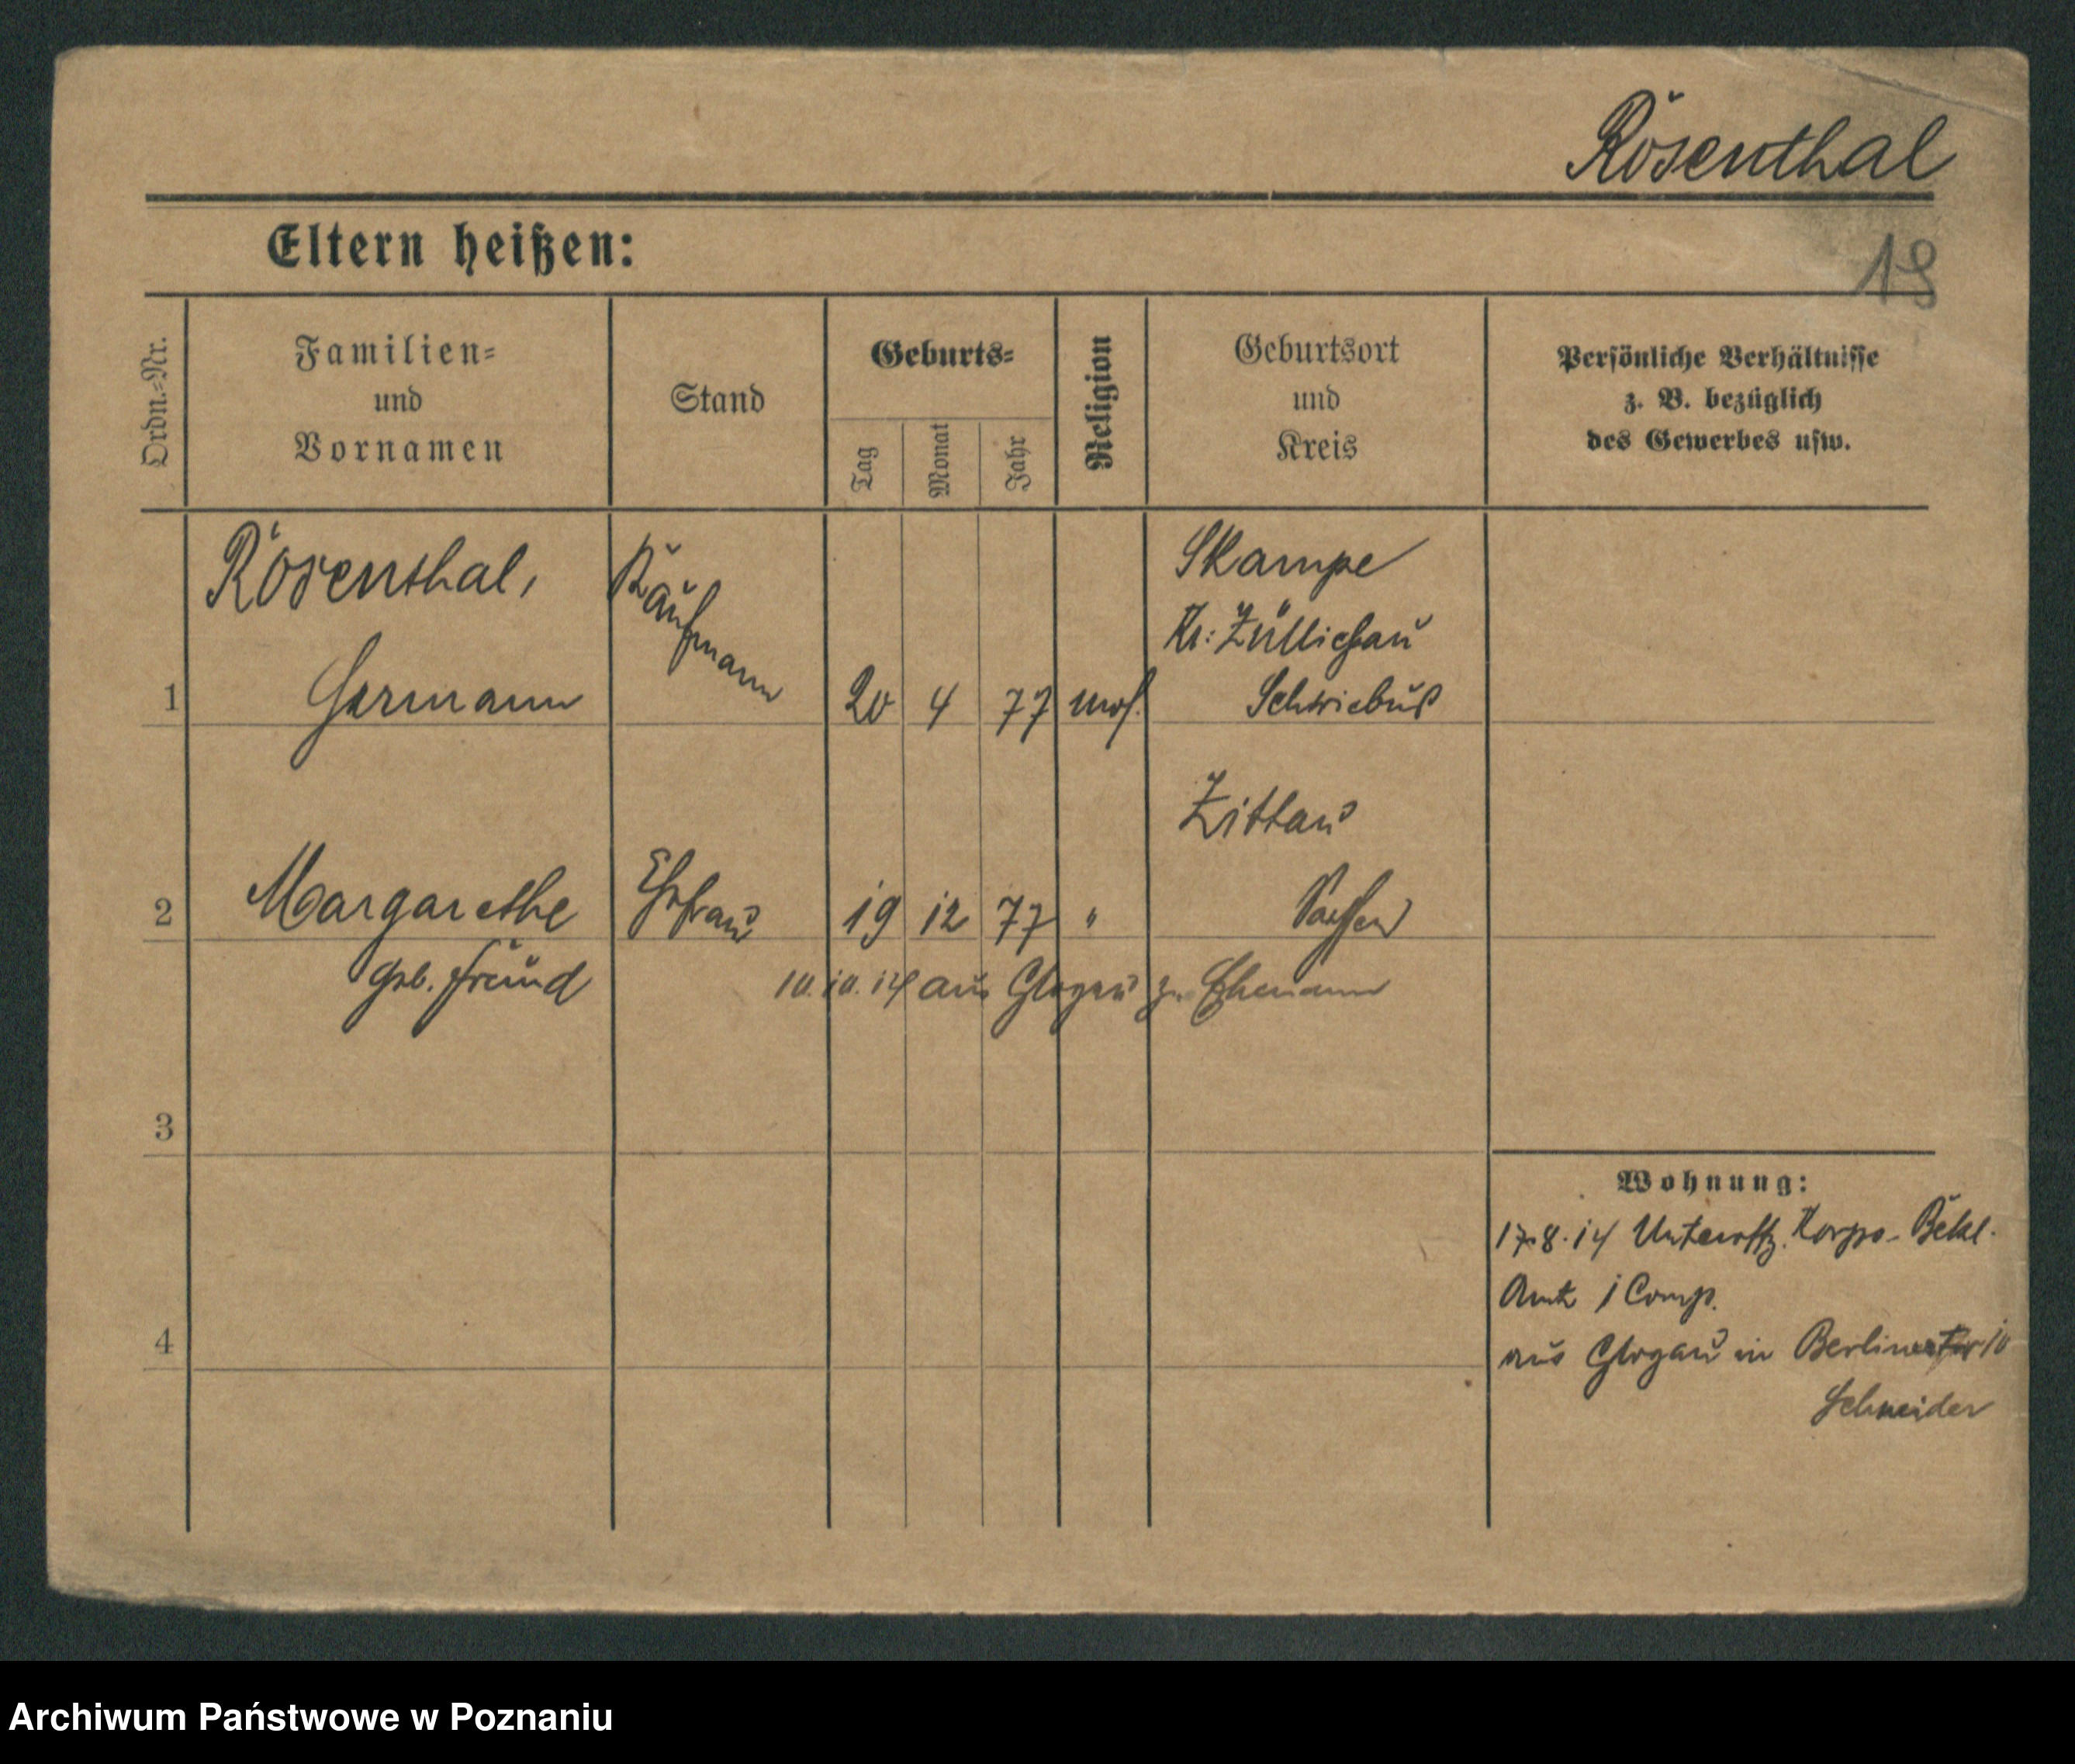 Rosenthal
19
Eltern heißen:
Ordn.=Nr.
Familien=
und
Vornamen
Stand
Geburts=
Tag
Monat
Jahr
Religion
Geburtsort
und
Kreis
Persönliche Verhältnisse
z. B. bezüglich
des Gewerbes usw.
1
Rosenthal,
Hermann
Kaufmann
20 4 77 mos.
Skampe
Kr: Züllichau
Schwiebus
2
Margarethe
geb. Freund
Ehefrau
19 12 77 "
Zittau
Sachsen
10.10.14 aus Glogau zu Ehemann
3
4
Wohnung:
17.8.14 Unteroffz. Korps-Bekl.
Amt 1 Comp.
aus Glogau in Berlinerstr 10
Schneider
Archiwum Państwowe w Poznaniu